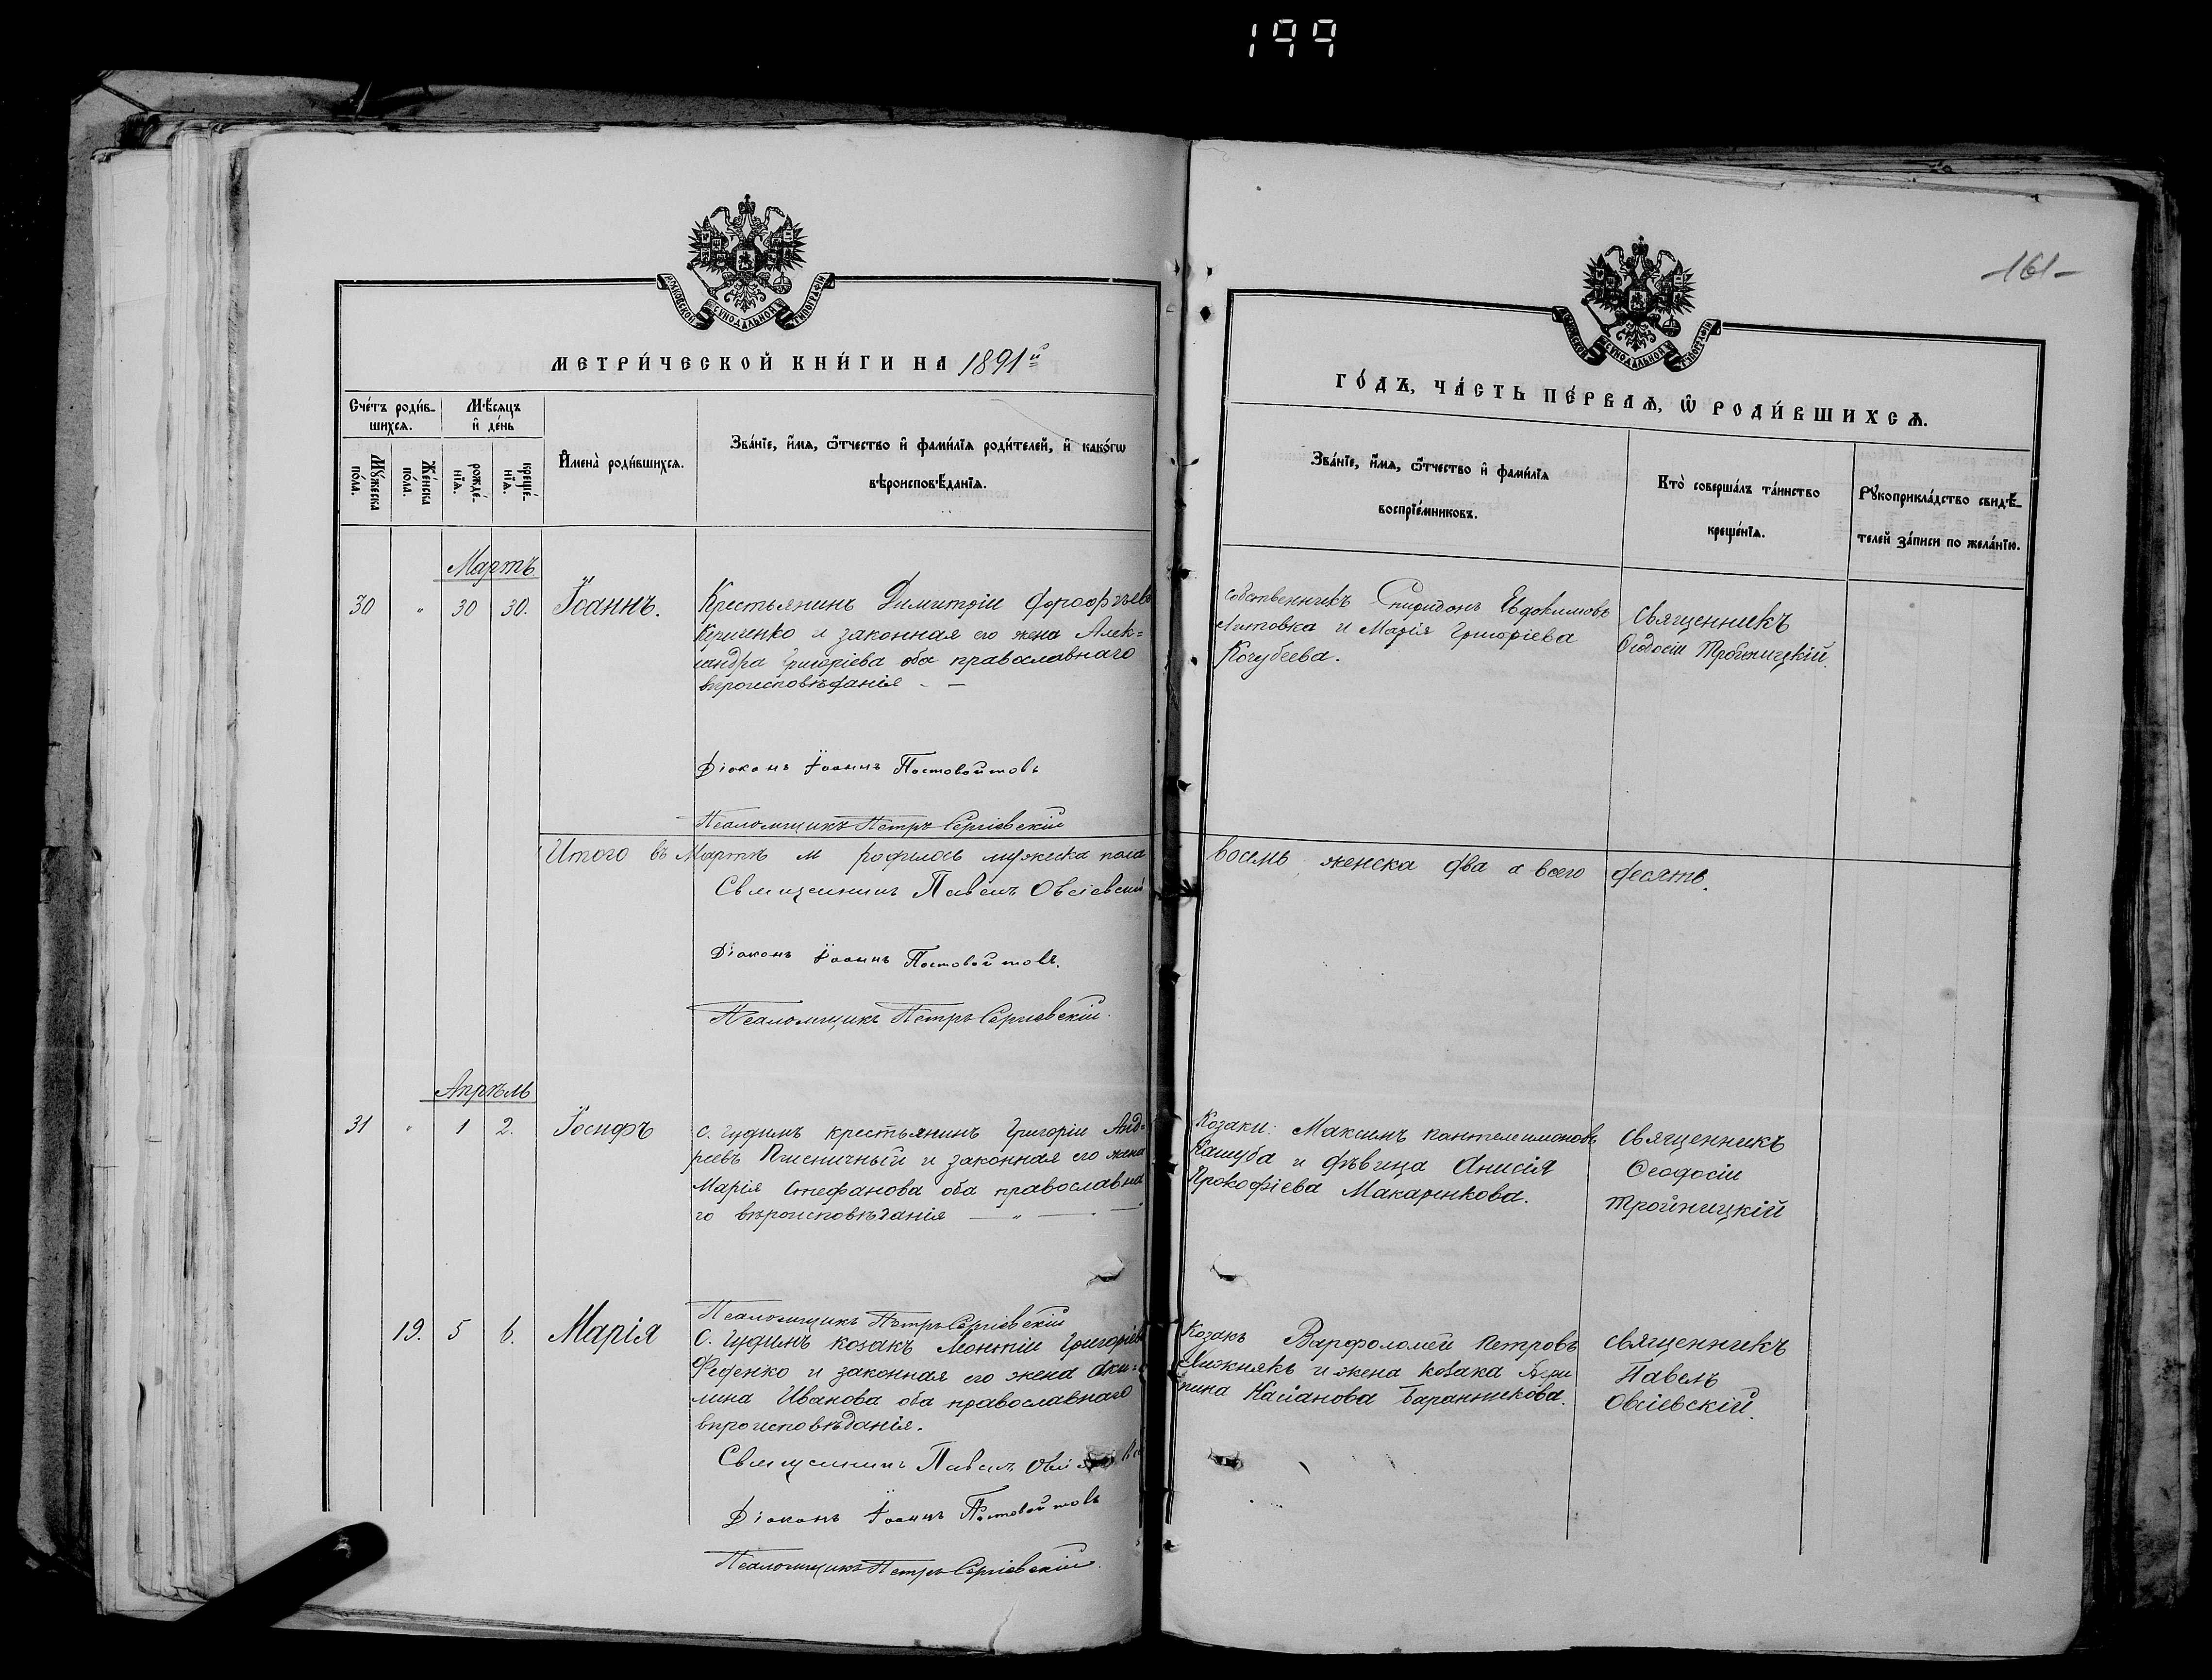 199
-161-
МОСКОВСКОЙ СѴНОДАЛЬНОЙ ТИПОГРАФІИ
МЕТРИ́ЧЕСКОЙ КНИ́ГИ НА 1891й
Сче́тъ роди́в-
шихся.
Мѣ́сяцъ
и҆ де́нь
Мꙋ́жеска
по́ла.
Же́нска
по́ла.
рожде́-
нїѧ.
креще́-
нїѧ.
И҆мена̀ роди́вшихсѧ.
Зва́нїе, и҆́мѧ, ѻ҆́тчество и҆ фами́лїѧ роди́телей, и҆ како́гѡ
вѣроисповѣ́данїѧ.
Мартъ
30 " 30 30. Іоаннъ.
Крестьянинъ Димитрій
Кириченко и законная его жена Алек=
сандра Григоріева оба православнаго
вѣроисповѣданія - —
Діаконъ Іоаннъ Постовойтовъ
Псаломщикъ Петръ Сергіевскій
Итого въ Мартѣ м родилось мужеска пола
Священникъ Павелъ Овсіевскій
Діаконъ Іоаннъ Постовойтовъ.
Псаломщикъ Петръ Сергіевскій.
Апрѣль
31 " 1 2. Іосифъ
с. Гудимъ крестьянинъ Григорій Анд=
реевъ Пшеничный и законная его жена
Марія Стефанова оба православна
го вѣроисповѣданія — " — - —
Псаломщикъ Петръ Сергіевскій
19. 5 6. Марія
С. Гудимъ козакъ Леонтій Григоріевъ
Феденко и законная его жена Аки=
лина Иванова оба православнаго
вѣроисповѣданія.
Священникъ Павелъ
Діаконъ Іоаннъ Постовойтовъ
Псаломщикъ Петръ Сергіевскій.
МОСКОВСКОЙ СѴНОДАЛЬНОЙ ТИПОГРАФІИ
ГО́ДЪ, ЧА́СТЬ ПЕ́РВАѦ, Ѡ҆ РОДИ́ВШИХСѦ.
Зва́нїе, и҆́мѧ, ѻ҆́тчество и҆ фами́лїѧ
воспрїе́мниковъ.
Кто̀ соверша́лъ та́инство
креще́нїѧ.
Рꙋкоприкла́дство свидѣ́-
телей за́писи по жела́нїю.
собственникъ Спиридонъ Евдокимовъ
Литовка и Марія Григоріева
Кочубеева.
священникъ
Ѳеодосій Тройницкій.
восемь женска два а всего десять.
Козаки: Максимъ Пантелеимоновъ
Кашуба и дѣвица Анисія
Прокофіева Макаренкова.
священникъ
Ѳеодосій
Тройницкій
Козакъ Варфоломей Петровъ
Лижнякъ и жена козака Агри
пина Касіанова Баранникова.
священникъ
Павелъ
Овсіевскій.